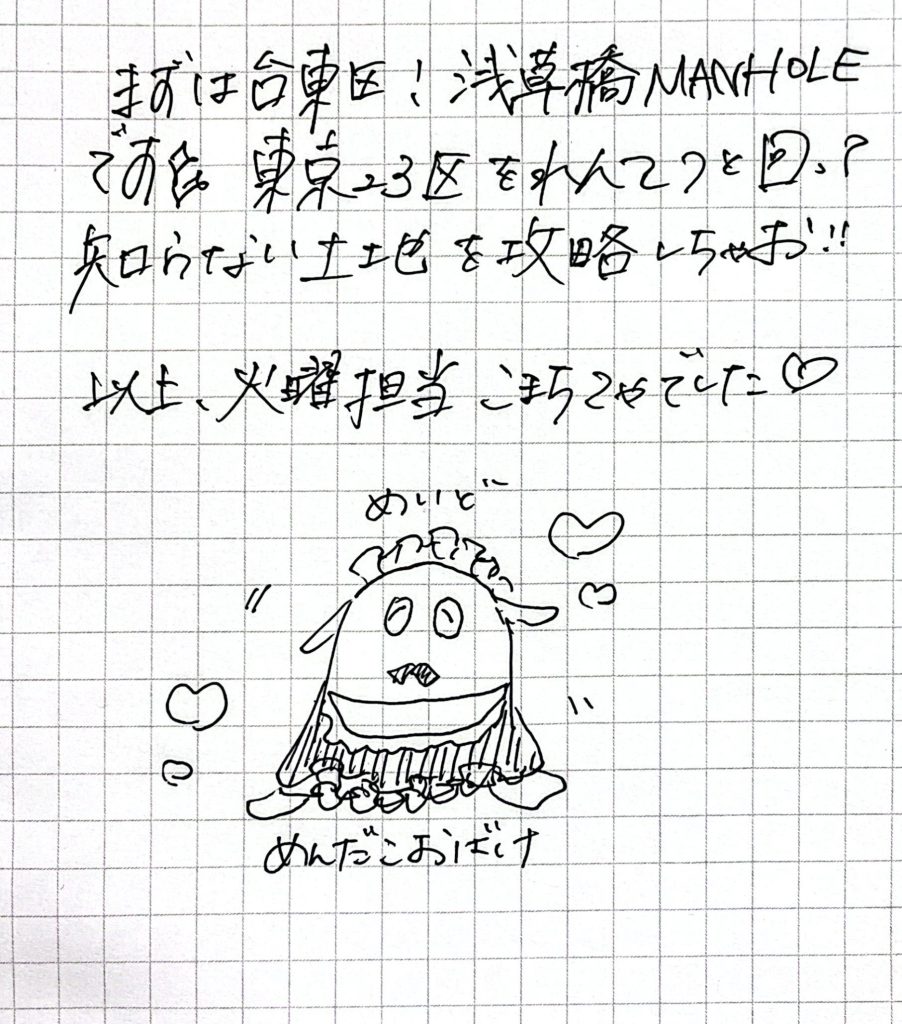 まずは台東区！浅草橋MANHOLE
です 東京23区を と回って
知らない土地を攻略しちゃお!!
以上、火曜担当 こまちてゃでした♡
めいど
めんだこおばけ